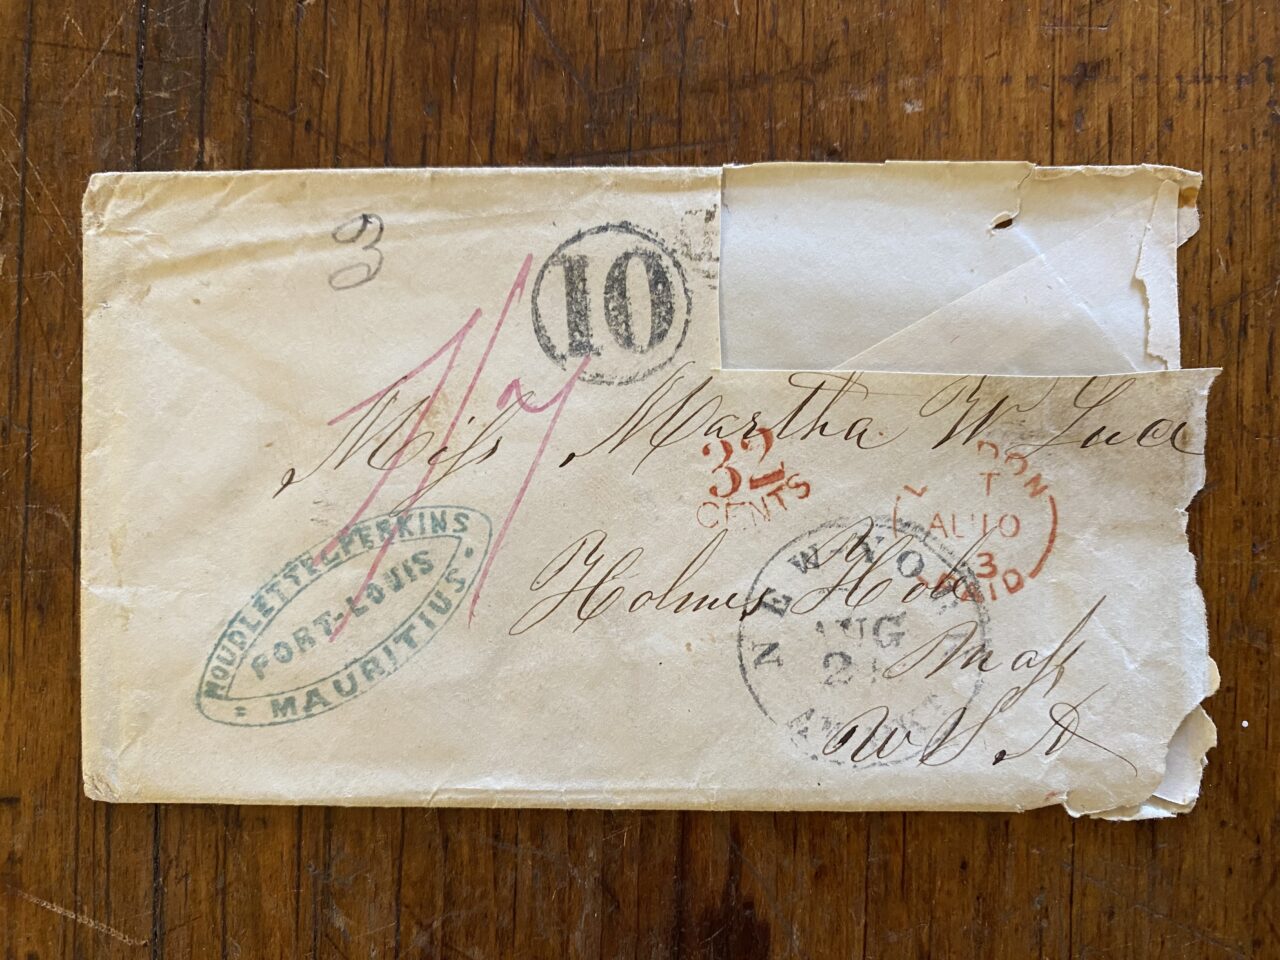 3
10
1/7
Miss Martha W. Luce
32
CENTS
LONDON
T
AU 10
3
PAID
HOUDLETTE & PERKINS
PORT-LOUIS
MAURITIUS
Holmes Hole
NEW YORK
AUG
Mass
U S A